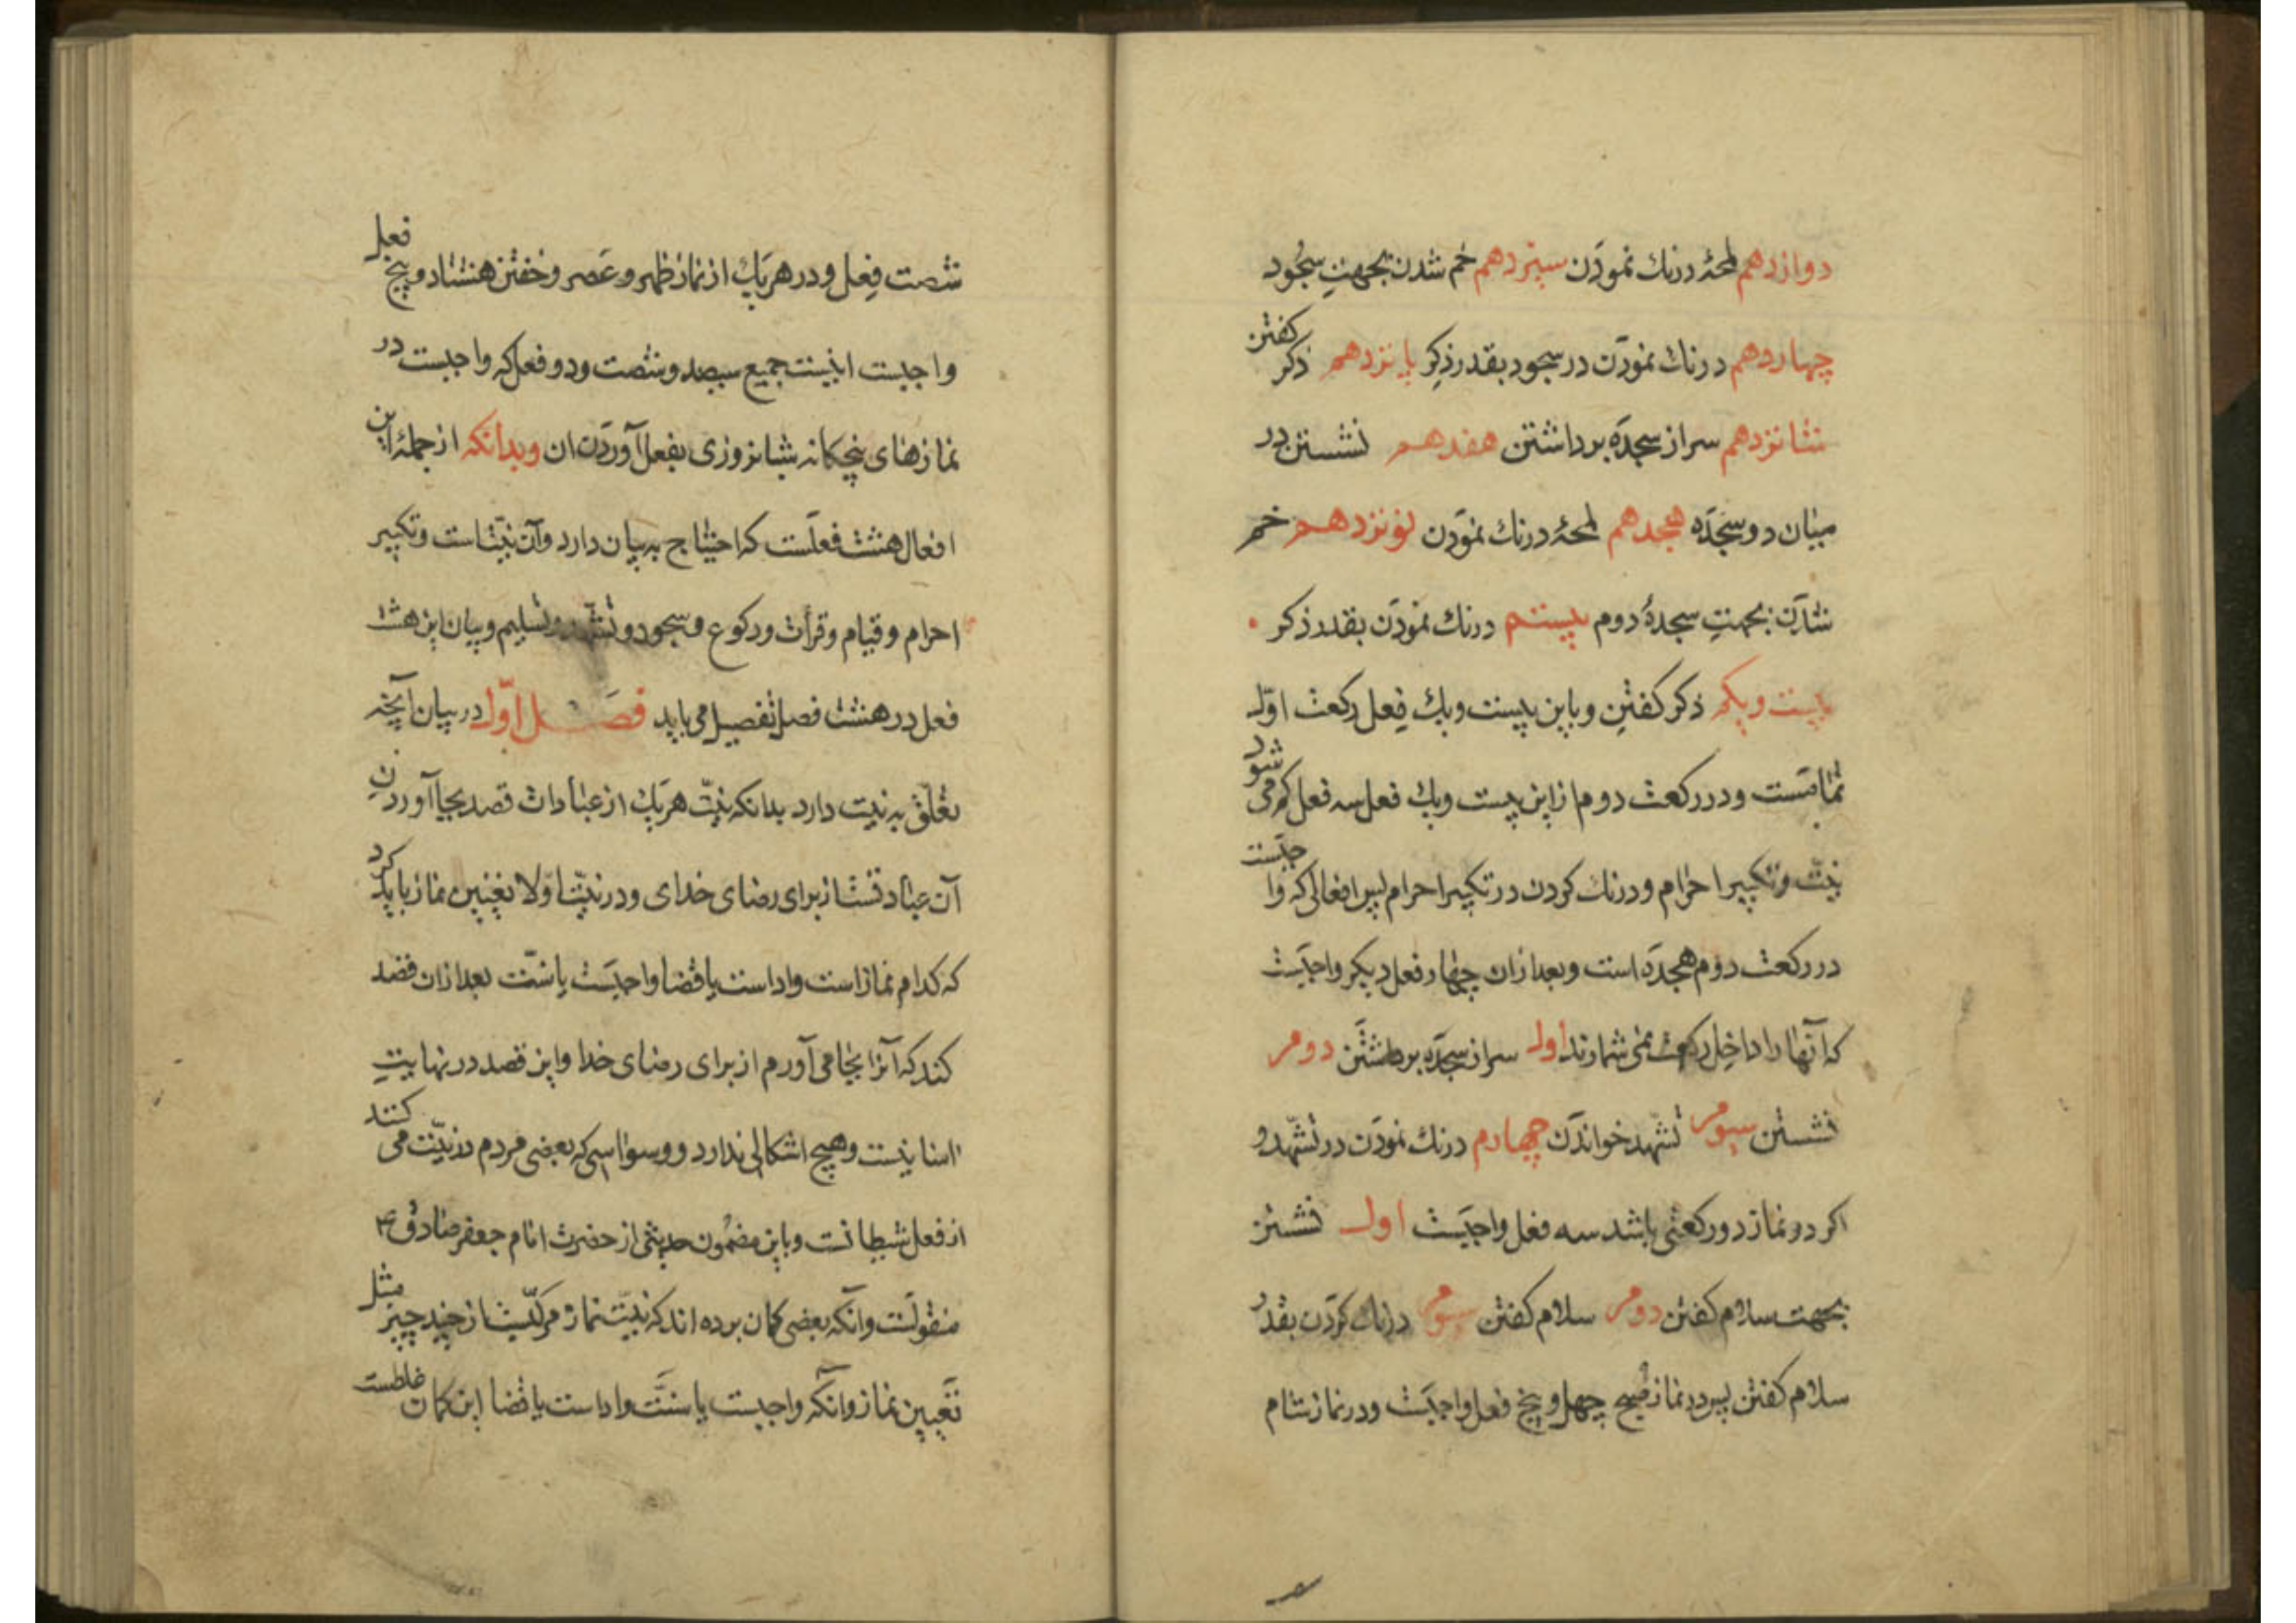 دوازدهم لمحهٔ درنك نمودن سیزدهم خم شدن بجهتِ سجُود
چهاردهم درنك نمودن در سجود بقدر ذکر پانزدهم ذکر کفتن
شانزدهم سر از سجده برداشتن هفدهم نشستن در
میان دو سجده هجدهم لمحهٔ درنك نمودن نونزدهم خم
شدن بجهتِ سجدهٔ دوم بیستم درنك نمودن بقدر ذکر
بیست ویکم ذکر کفتن و باین بیست ویك فِعل رکعت اوّل
تمامست ودر رکعت دوم ازاین بیست ویك فعل سه فعل کم می شود
نیّت وتکبیر احرام ودرنك کردن در تکبیر احرام پس افعالی که واجبست
در رکعت دوم هجده است وبعد ازان چهار فعل دیکر واجبست
که آنها را داخل رکعت نمی شمارند اول سر از سجده برداشتن دوم
نشستن سوم تشهد خواندن چهارم درنك نمودن در تشهد و
اکر دو نماز دو رکعتی باشد سه فعل واجبست اول نشستن
بجهت سلام کفتن دوم سلام کفتن سوم درنك کردن بقدر
سلام کفتن پس در نماز صبح چهل و پنج فعل واجبست ودر نماز شام
شصت فِعل و در هریك از نماز ظهر و عَصر و خفتن هشتاد و پنج فعل
واجبست اینست جمیع سیصد وشصت ودو فعل که واجبست در
نمازهای پنجکانه شبانروزی بفعل آوردن ان وبدانکه از جملهٔ این
افعال هشت فعلست که احتیاج به بیان دارد وآن نیّتست وتکبیر
احرام وقیام وقرأت ورکوع وسجود وتشهد وتسلیم وبیان این هشت
فعل در هشت فصل تفصیل می یابد فصل اوّل در بیان آنچه
تعلّق به نیت دارد بدانکه نیّت هریك از عبادات قصد بجا آوردنِ
آن عبادتست از برای رضای خدای ودر نیّت اوّلا تعیین نماز باید کرد
که کدام نماز است واداست یا قضا واجبست یا سنّت بعد ازان قصد
کند که آنرا بجا می آورم از برای رضای خدا واین قصد در نهایتِ
اسانیست وهیچ اشکالی ندارد ووسواسی که بعضی مردم در نیّت می کنند
از فعل شیطانست وباین مضمون حدیثی از حضرت امام جعفر صادق ع
منقولست وآنکه بعضی کمان برده اند که نیّت نماز مرکّبست از چند چیز مثل
تعیین نماز وآنکه واجبست یا سنّت واداست یا قضا این کمان غلطست